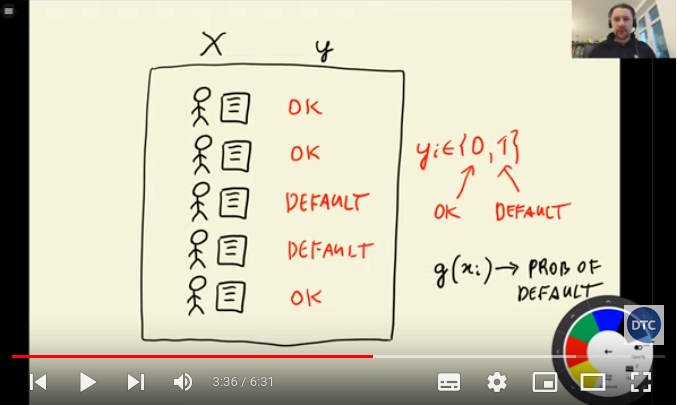 X y
OK
OK
DEFAULT
DEFAULT
OK
yi ∈ {0, 1}
OK DEFAULT
g(xi) → PROB OF
DEFAULT
DTC
Opacity
3:36 / 6:31